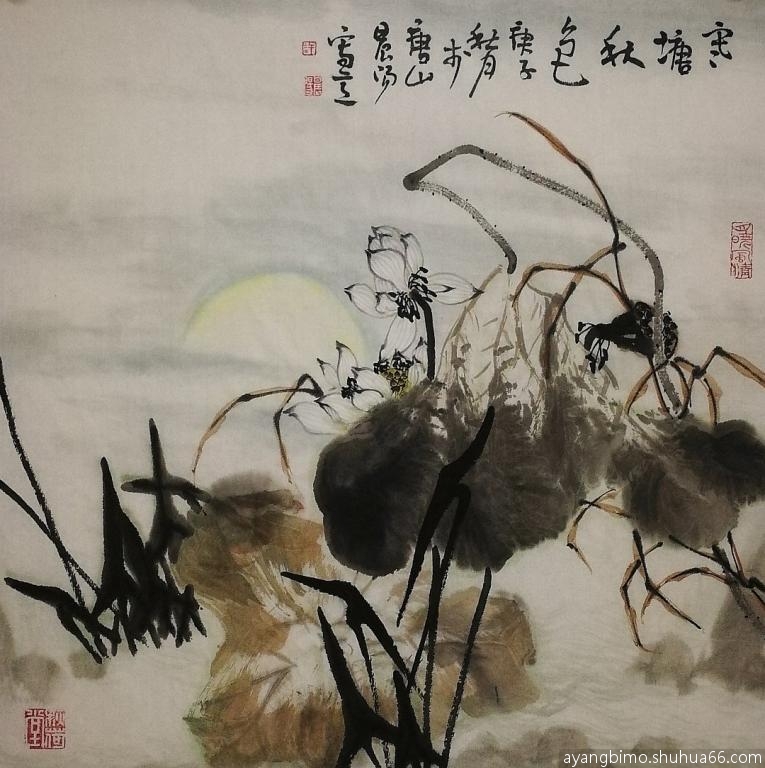 寒塘秋色
庚子
秋月
於
唐山
晨陽
寫意
ayangbimo.shuhua66.com